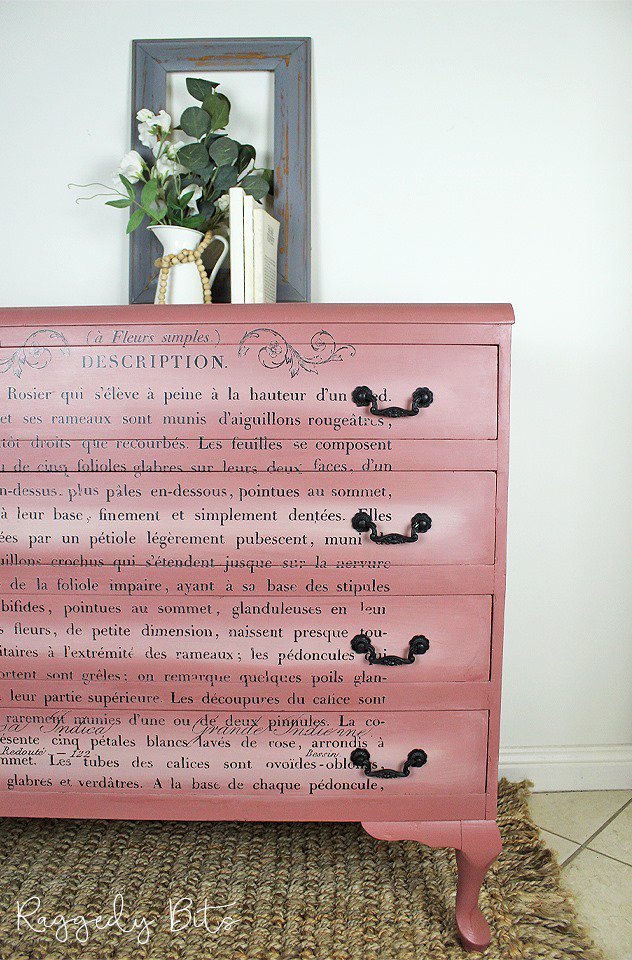 (à Fleurs simples.)
DESCRIPTION.
Rosier qui s'élève à peine à la hauteur d'un
et ses rameaux sont munis d'aiguillons rougeâtres,
droits que recourbés. Les feuilles se composent
de cinq folioles glabres sur leurs deux faces, d'un
en-dessus, plus pâles en-dessous, pointues au sommet,
à leur base, finement et simplement dentées. Elles
par un pétiole légèrement pubescent, muni
crochus qui s'étendent jusque sur la nervure
de la foliole impaire, ayant à sa base des stipules
bifides, pointues au sommet, glanduleuses en leur
fleurs, de petite dimension, naissent presque tou-
à l'extrémité des rameaux; les pédoncules qui
sont grêles; on remarque quelques poils glan-
leur partie supérieure. Les découpures du calice sont
rarement munies d'une ou de deux pinnules. La co-
Indica Grande Indienne
cinq pétales blancs lavés de rose, arrondis à
Redouté. — 122 Bessin
Les tubes des calices sont ovoïdes-oblongs,
glabres et verdâtres. A la base de chaque pédoncule,
Raggedy Bits